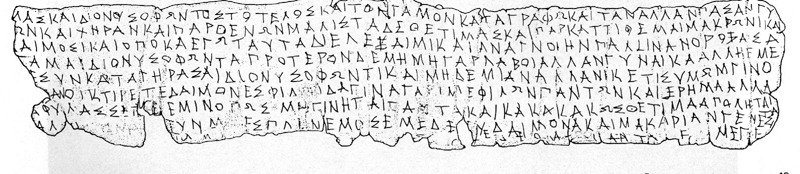 ΜΑΣΚΑΙΔΙΟΝΥΣΟΦΩΝΤΟΣΤΟΤΕΛΟΣΚΑΙΤΟΝΓΑΜΟΝΚΑΤΑΓΡΑΦΩΚΑΙΤΑΝΑΛΛΑΝΠΑΣΑΝΓΥ
ΩΝΚΑΙΧΗΡΑΝΚΑΙΠΑΡΘΕΝΩΝΜΑΛΙΣΤΑΔΕΘΕΤΙΜΑΣΚΑΙΠΑΡΚΑΤΤΙΘΕΜΑΙΜΑΚΡΩΝΙΚΑΙ
ΔΑΙΜΟΣΙΚΑΙΟΠΟΚΑΕΓΩΤΑΥΤΑΔΙΕΛΕΞΑΙΜΙΚΑΙΑΝΑΓΝΟΙΗΝΠΑΛΛΙΝΑΝΟΡΟΞΑΣΑ
ΓΑΜΑΙΔΙΟΝΥΣΟΦΩΝΤΑΠΡΟΤΕΡΟΝΔΕΜΗΜΗΓΑΡΛΑΒΟΙΑΛΛΑΝΓΥΝΑΙΚΑΑΛΛΗΕΜΕ
ΕΣΥΝΚΑΤΑΓΗΡΑΣΑΙΔΙΟΝΥΣΟΦΩΝΤΙΚΑΙΜΗΔΕΜΙΑΝΑΛΛΑΝΙΚΕΤΙΣΥΜΩΜΓΙΝΟ
ΑΝΟΙΚΤΙΡΕΤΕΔΑΙΜΟΝΕΣΦΙΛ ΔΑΓΙΝΑΓΑΡΙΜΕΦΙΛΩΝΠΑΝΤΩΝΚΑΙΕΡΗΜΑΑΛΛΑ
ΦΥΛΑΣΣΕΤΕΕΜΙΝΟΠΩΣΜΗΓΙΝΗΤΑΙΤΑ ΤΑΚΑΙΚΑΚΑΚΑΚΩΣΘΕΤΙΜΑΑΠΟΛΗΤΑΙ
ΑΛ ΥΝΜ ΕΣΠΛΗΝΕΜΟΣΕΜΕΔΕ ΑΙΜΟΝΑΚΑΙΜΑΚΑΡΙΑΝΓΕΝΕΣ
ΤΟ Ε ΜΕΓΕ